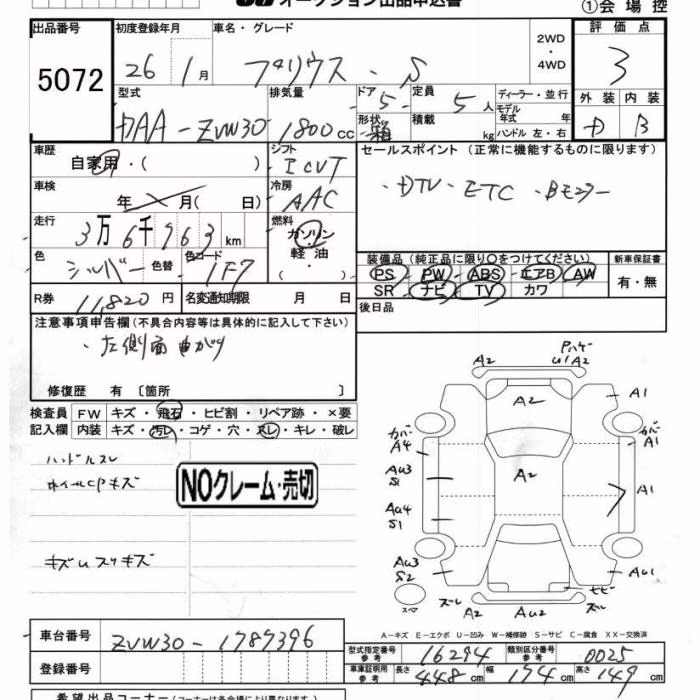 オークション出品申込書
①会場控
出品番号
5072
初度登録年月
26 1月
車名・グレード
プリウス・S
2WD・4WD
評価点
3
型式
DAA-ZVW30
排気量
1800cc
ドア
5
形状
箱
定員
5人
積載
kg
ディーラー・並行
モデル年式 年
ハンドル 左・右
外装
D
内装
B
車歴
自家用・( )
シフト
ICVT
セールスポイント (正常に機能するものに限ります)
・DTV・ETC・Bモニター
車検
年 月( 日)
冷房
AAC
走行
3万6千963km
燃料
ガソリン
軽油
・( )
色
シルバー
色替
色コード
1F7
装備品 (純正品に限り○をつけてください)
PS PW ABS エアB AW
SR ナビ TV カワ
新車保証書
有・無
R券
11,820円
名変通知期限 月 日
後日品
注意事項申告欄 (不具合内容等は具体的に記入して下さい)
・左側面曲がり
修復歴 有 〔箇所 〕
検査員記入欄
FW キズ・飛石・ヒビ割・リペア跡・×要
内装 キズ・汚レ・コゲ・穴・スレ・キレ・破レ
ハンドルスレ
ホイールCPキズ
NOクレーム・売切
キズUスリキズ
A2
A2
U1A2
A1
カバー
A4
カバー
A1
Au3
S1
A2
A1
Au4
S1
Au3
S2
Au1
スペア
ズレ
A2
Au2
ズレ
A-キズ E-エクボ U-凹み W-補修跡 S-サビ C-腐食 XX-交換済
車台番号
ZVW30-1787396
登録番号
型式指定番号
参考
16294
類別区分番号
参考
0025
車庫証明用
参考
長さ 448cm 幅 174cm 高さ 149cm
希望出品コーナー